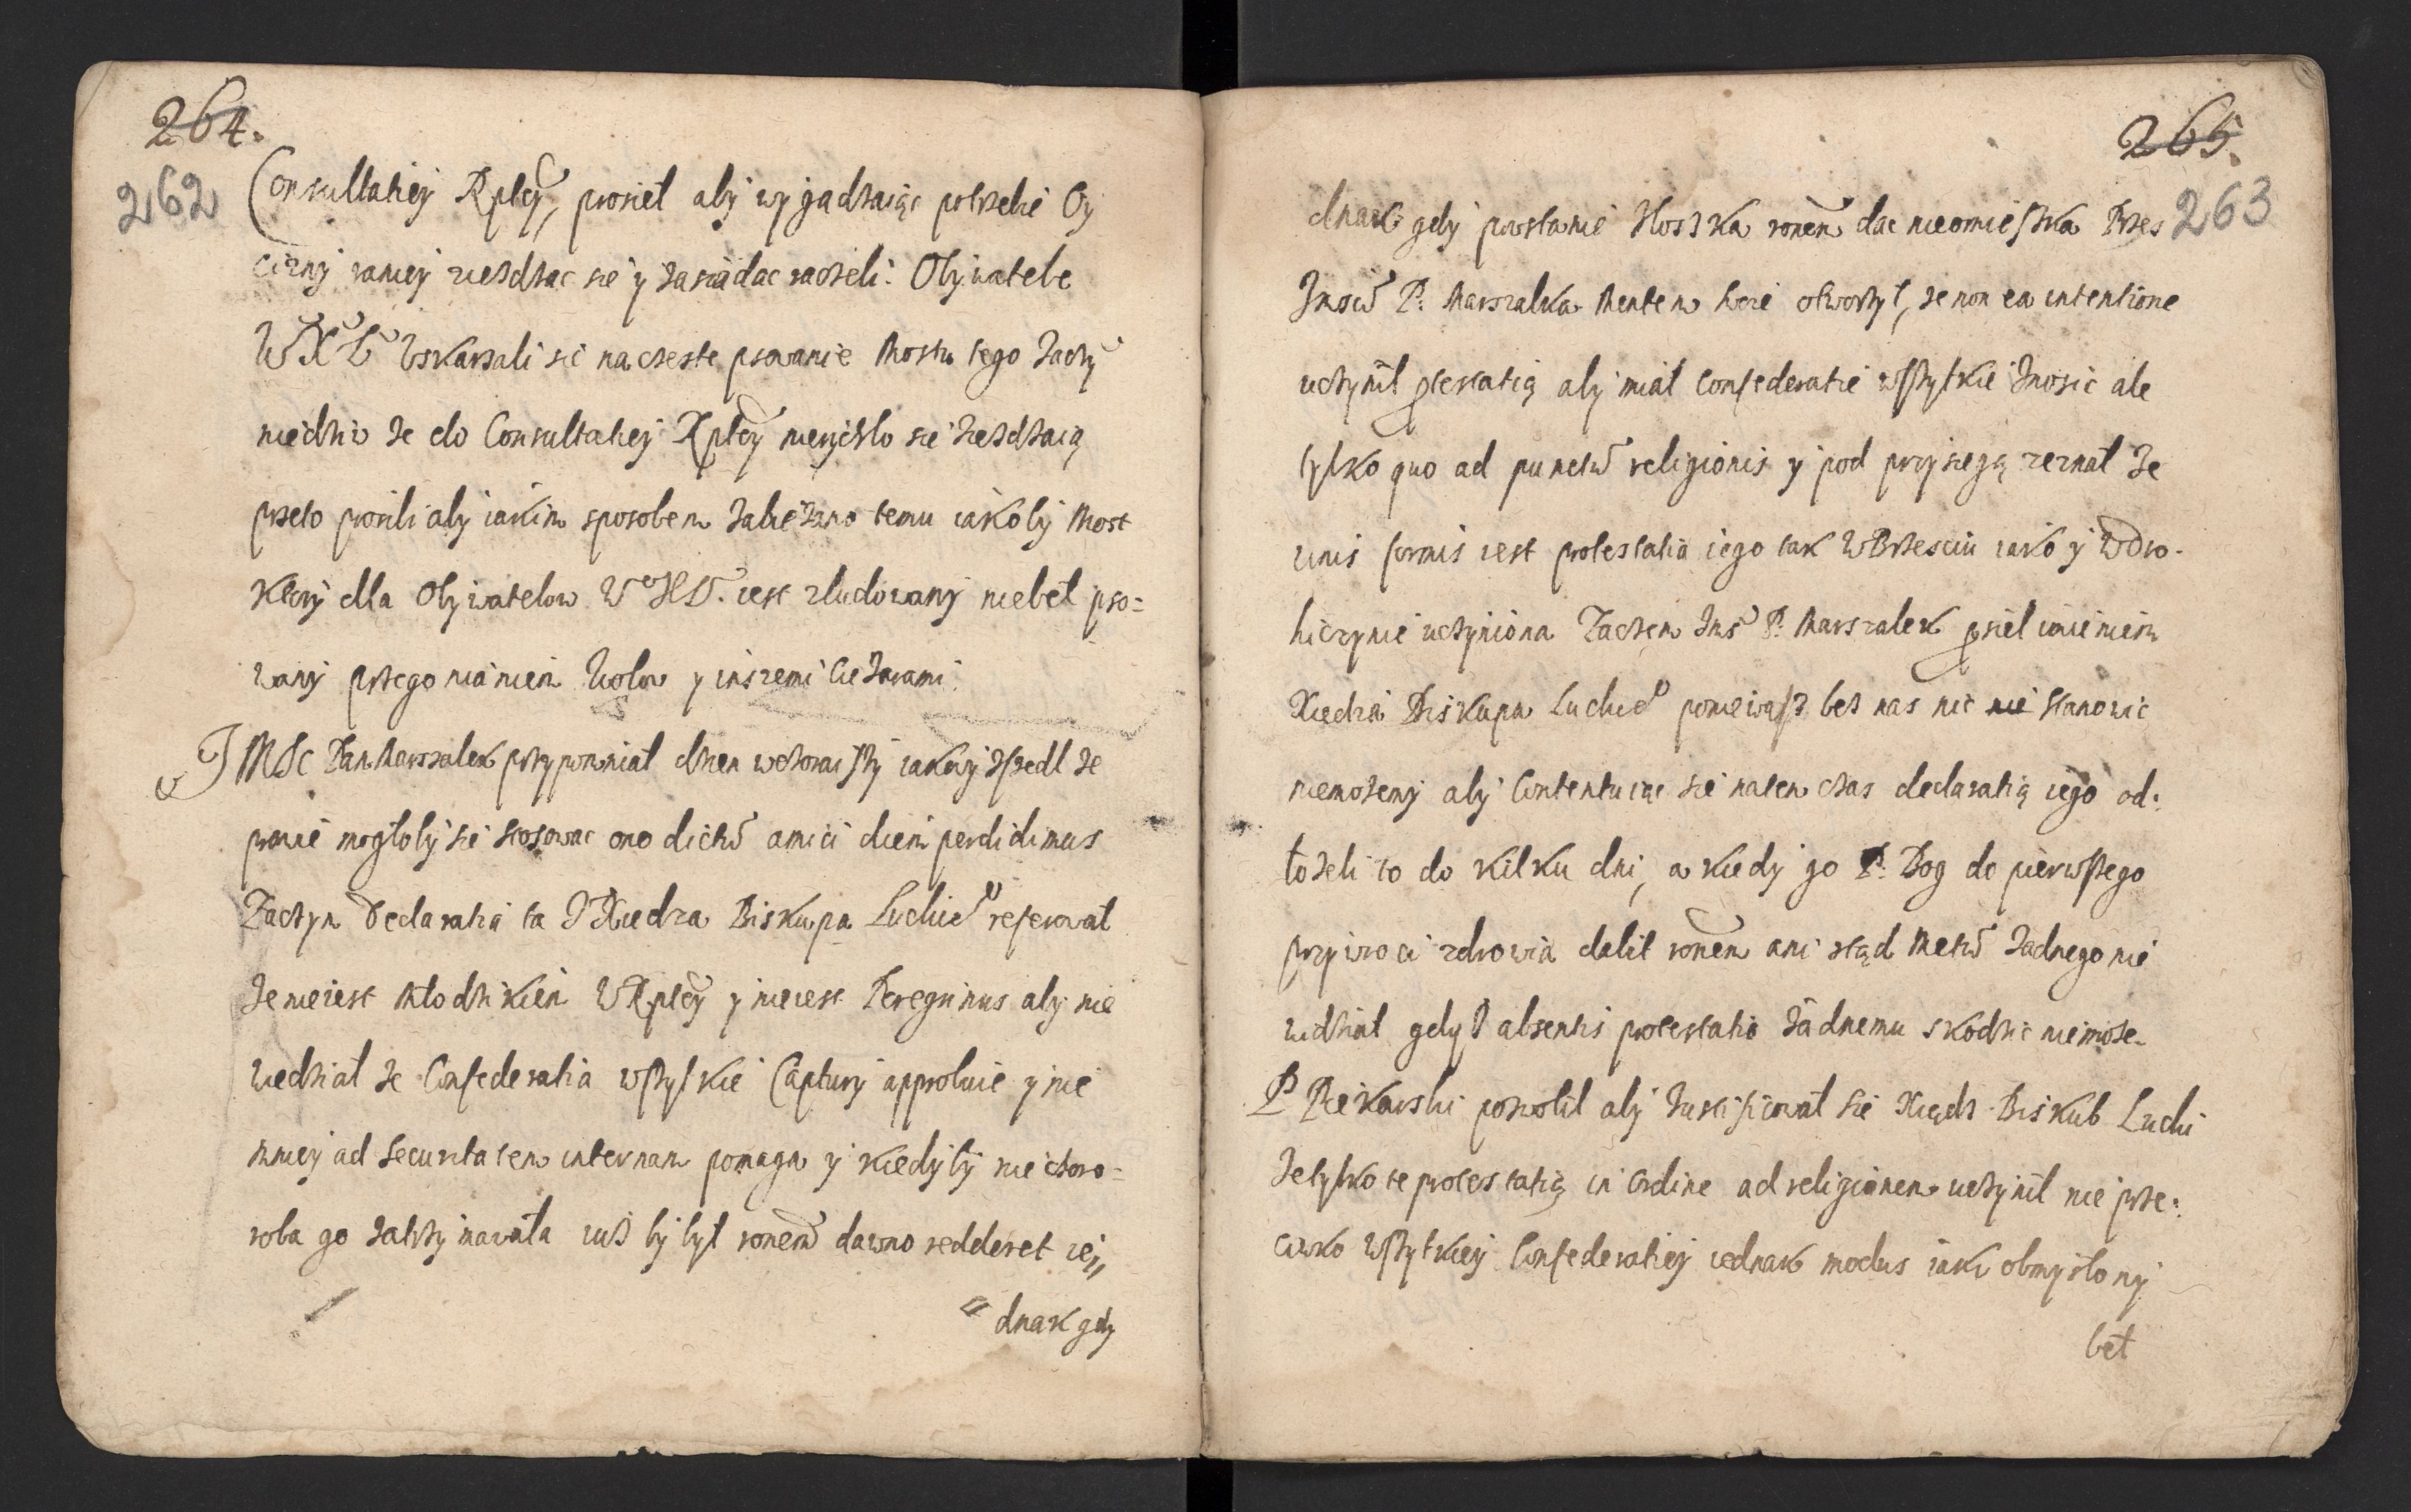 264.
262
Consultatiey Rptcy, prosieł aby wygadzaiąc potrzebie Oy
cizny raniey ziezdzac sie y zasiadac raczeli. Obywatele
WXL Uskarzali sie na czeste psowanie Mostu tego zaczy
niedziw ze do Consultatiey Rptcy nierychło sie ziezdzaią
przeto prosili aby iakim sposobem zabiezano temu iakoby Most
ktory dla Obywatelow WXL. iest zbudowany niebeł pso=
wany przegonianiem Wołow y inszemi Ciezarami.
IMSc Pan Marszałek przypomniał dzien wczoraiszy iakowy zszedl ze
prawie mogłoby sie stosowac ono dictu amici diem perdidimus
Zaczym Declaratia ta JXiedza Biskupa Luckie° referował
ze nieiest Młodzikiem W Rptcy y nieiest Peregrinus aby nie
wiedział ze Confederatia wszystkie Captury approbuie y nie
mniey ad securitatem internam pomaga y kiedyby nie choro=
roba go zatrzymawała iusz by był ronem dawno redderet ie//
// dnak gdy
265.
263
dnak gdy powstanie z łoszka ronem dac nieomieszka Przez
Jmsci P. Marszałka Mentem swoie otworzył, ze non ea intentione
uczynił protestatią aby miał Confederatie wszystkie znosic ale
tylko quo ad punctu religionis y pod przysiegą zeznał ze
unis formis iest protestatia iego tak W Brzesciu iako y W Dro-
hiczynie uczyniona Zaczem Jms P. Marszałek prosieł imieniem
Xiedza Biskupa Luckie° poniewasz bez nas nic nie stanowic
niemozemy aby Contentuiąc sie naten czas declaratią iego od:
łozeli to do kilku dni, a kiedy go P. Bog do pierwszego
przywroci zdrowia dalit ronem ani stąd Metu zadnego nie
widział gdyz absentis protestatio zadnemu skodzic niemoze.
P Piekarski pozwolił aby Iustificował sie Xiądz Biskub Lucki
ze tylko te protestatią in Ordine ad religionem uczynił nie prze:
ciwko Wszystkiey Confederatiey iednak modus iaki obmysłony
beł